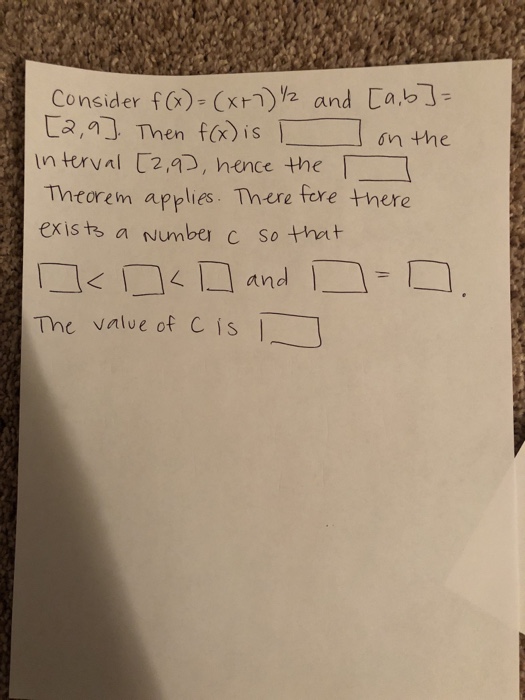 Consider f(x) = (x+7)^1/2 and [a,b]=
[2,9]. Then f(x) is on the
interval [2,9], hence the
Theorem applies. There fore there
exists a number c so that
< < and = .
The value of C is